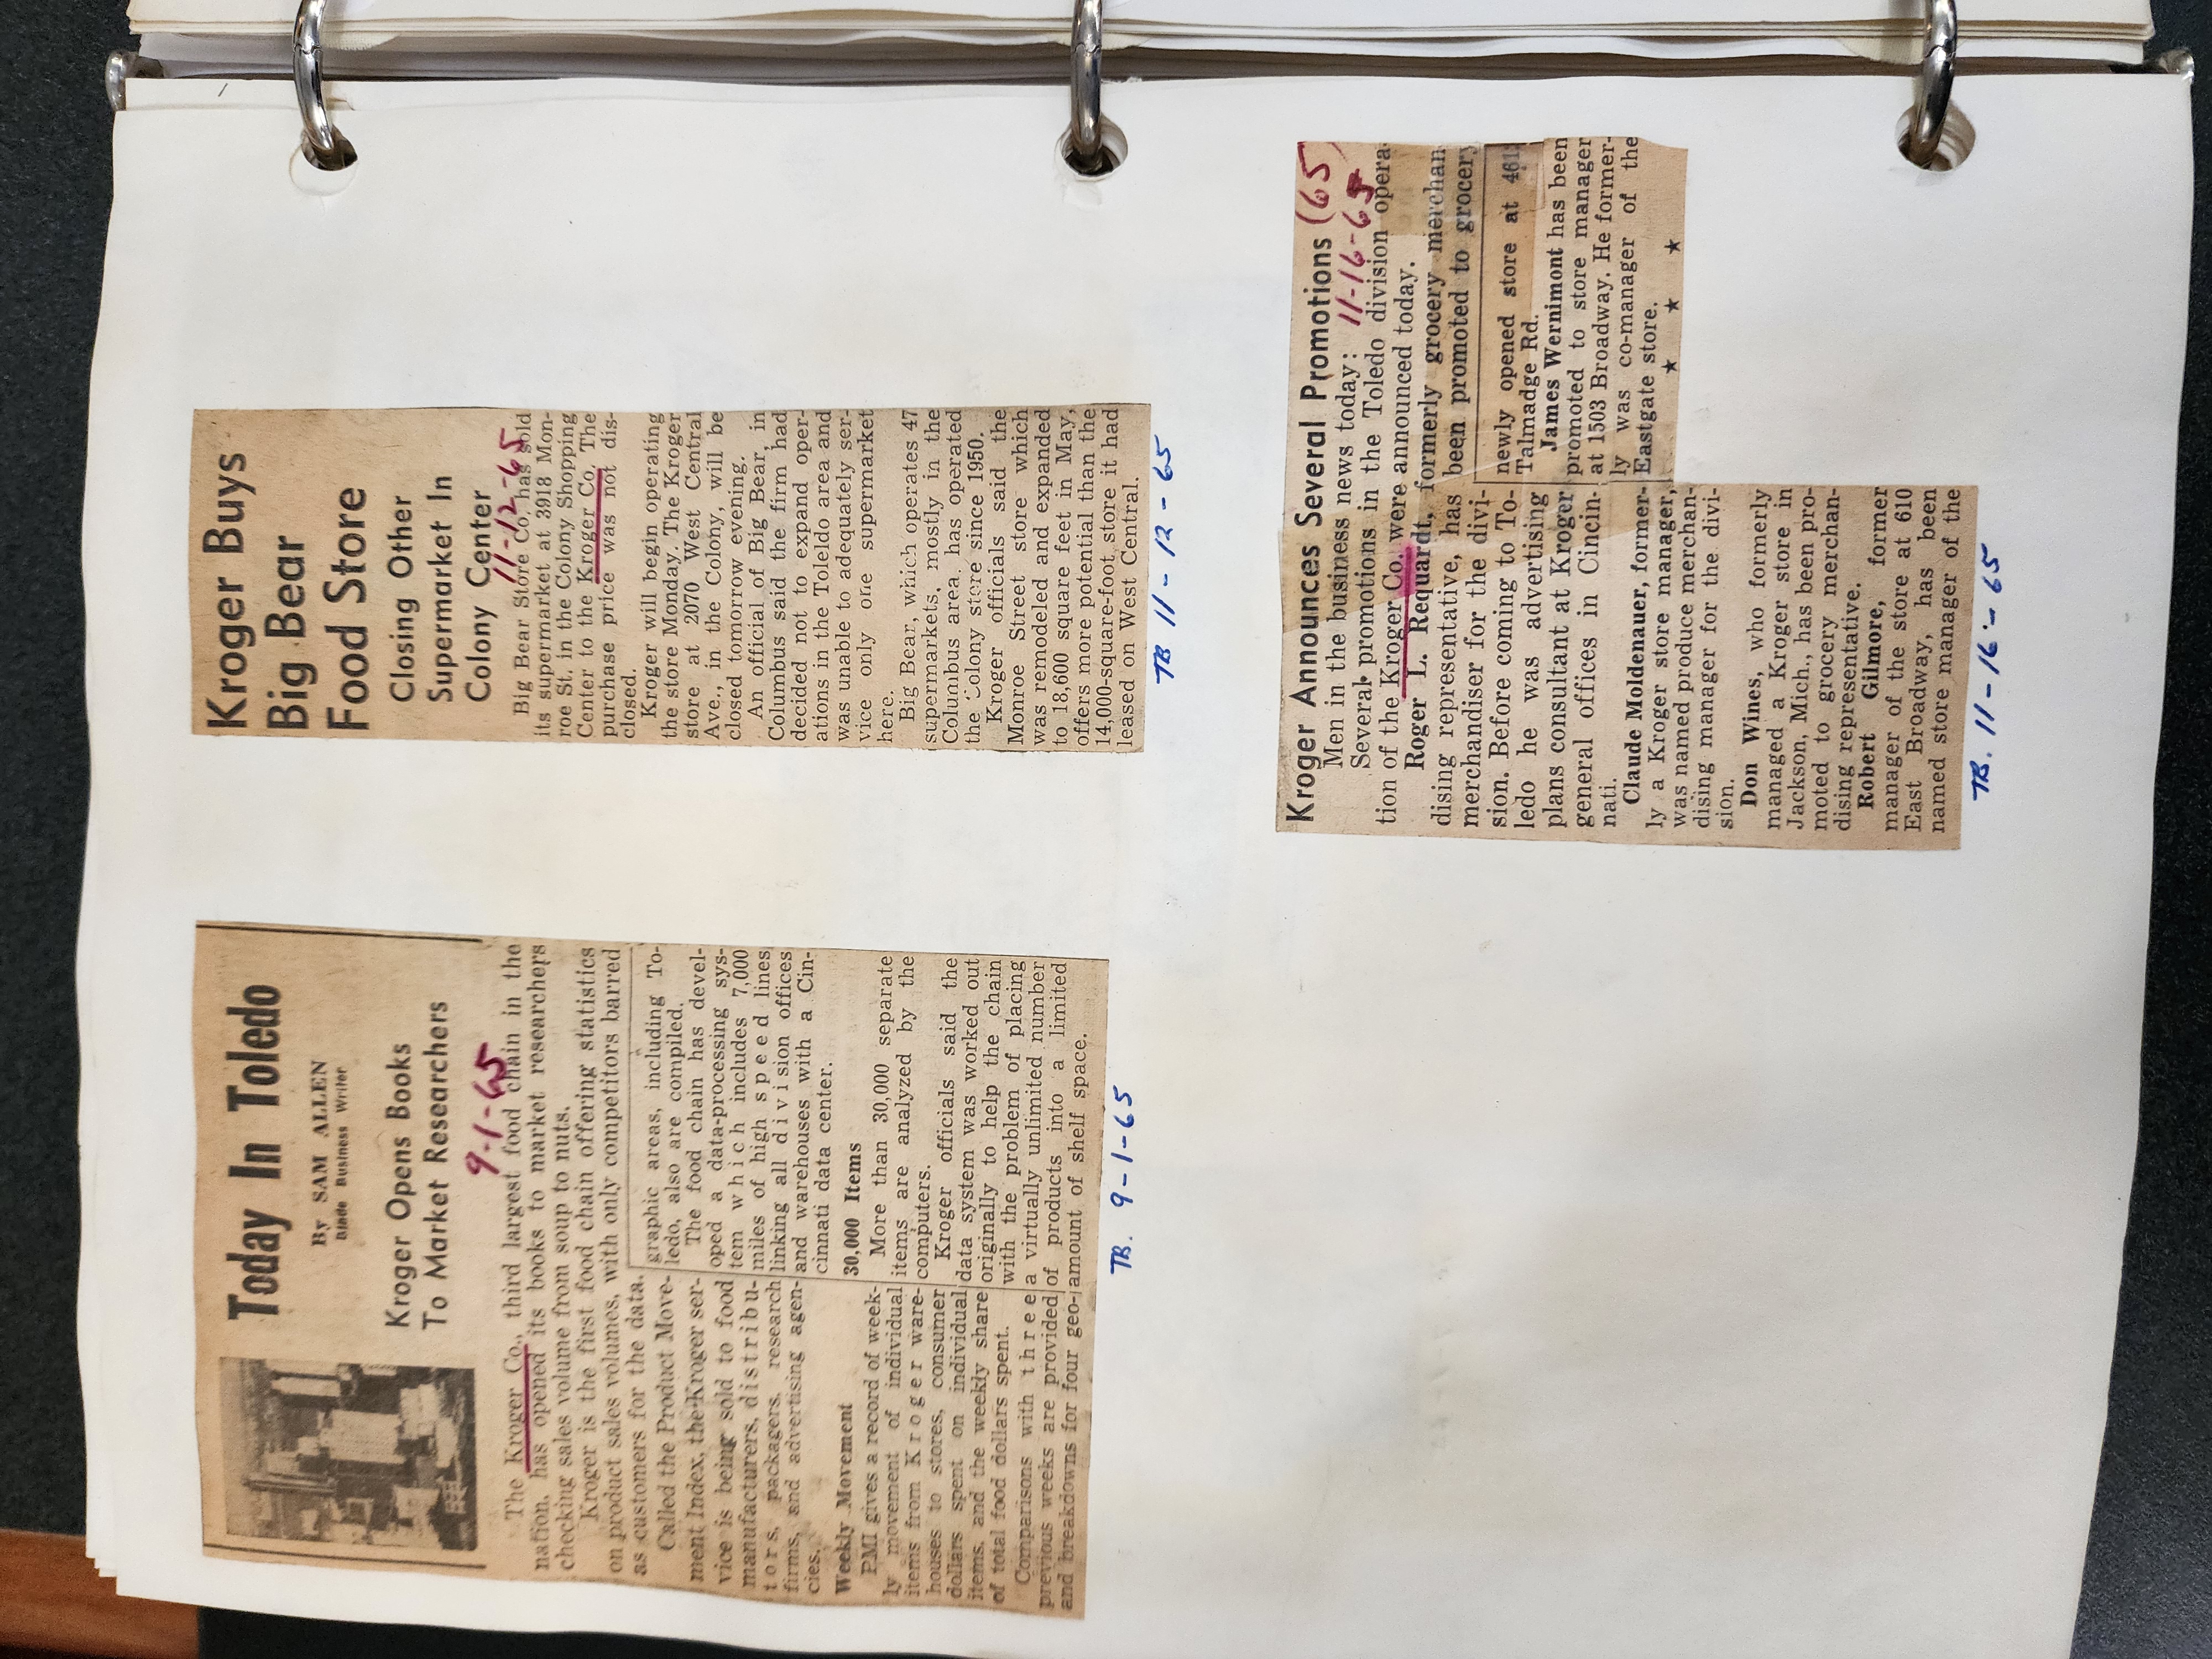 Today In Toledo
By SAM ALLEN
Blade Business Writer
Kroger Opens Books
To Market Researchers
9-1-65
The Kroger Co., third largest food chain in the
nation, has opened its books to market researchers
checking sales volume from soup to nuts.
Kroger is the first food chain offering statistics
on product sales volumes, with only competitors barred
as customers for the data.
Called the Product Move-
ment Index, the Kroger ser-
vice is being sold to food
manufacturers, distribu-
tors, packagers, research
firms, and advertising agen-
cies.
Weekly Movement
PMI gives a record of week-
ly movement of individual
items from Kroger ware-
houses to stores, consumer
dollars spent on individual
items, and the weekly share
of total food dollars spent.
Comparisons with three
previous weeks are provided
and breakdowns for four geo-
graphic areas, including To-
ledo, also are compiled.
The food chain has devel-
oped a data-processing sys-
tem which includes 7,000
miles of high speed lines
linking all division offices
and warehouses with a Cin-
cinnati data center.
30,000 Items
More than 30,000 separate
items are analyzed by the
computers.
Kroger officials said the
data system was worked out
originally to help the chain
with the problem of placing
a virtually unlimited number
of products into a limited
amount of shelf space.
TB. 9-1-65
Kroger Buys
Big Bear
Food Store
Closing Other
Supermarket In
Colony Center
11-12-65
Big Bear Store Co. has sold
its supermarket at 3918 Mon-
roe St. in the Colony Shopping
Center to the Kroger Co. The
purchase price was not dis-
closed.
Kroger will begin operating
the store Monday. The Kroger
store at 2070 West Central
Ave., in the Colony, will be
closed tomorrow evening.
An official of Big Bear, in
Columbus said the firm had
decided not to expand oper-
ations in the Toleldo area and
was unable to adequately ser-
vice only one supermarket
here.
Big Bear, which operates 47
supermarkets, mostly in the
Columbus area, has operated
the Colony store since 1950.
Kroger officials said the
Monroe Street store which
was remodeled and expanded
to 18,600 square feet in May,
offers more potential than the
14,000-square-foot store it had
leased on West Central.
TB 11-12-65
Kroger Announces Several Promotions (65)
Men in the business news today: 11-16-65
Several promotions in the Toledo division opera-
tion of the Kroger Co. were announced today.
Roger L. Requardt, formerly grocery merchan-
dising representative, has been promoted to grocery
merchandiser for the divi-
sion. Before coming to To-
ledo he was advertising
plans consultant at Kroger
general offices in Cincin-
nati.
Claude Moldenauer, former-
ly a Kroger store manager,
was named produce merchan-
dising manager for the divi-
sion.
Don Wines, who formerly
managed a Kroger store in
Jackson, Mich., has been pro-
moted to grocery merchan-
dising representative.
Robert Gilmore, former
manager of the store at 610
East Broadway, has been
named store manager of the
newly opened store at 4612
Talmadge Rd.
James Wernimont has been
promoted to store manager
at 1503 Broadway. He former-
ly was co-manager of the
Eastgate store.
★ ★ ★
TB. 11-16-65